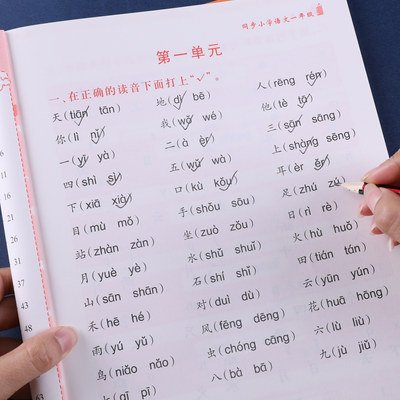 同步小学语文一年级
第一单元
一、在正确的读音下面打上“✓”。
天(tiān tān) 地(dì bē) 人(rēng rén)
你(lǐ nǐ) 我(wǒ wé) 他(tè tā)
一(yī yà) 二(à èr) 三(sān sāng)
四(shì sì) 五(wǔ wā) 上(shàng sēng)
下(xiā xià) 口(kù kǒu) 耳(èr ěr)
目(mù mǒ) 手(shǒu sǒu) 足(zhú zú)
站(zhàn zàn) 坐(zuò zǒu) 日(rì rè)
月(yuè yè) 水(shǔ shuǐ) 火(hù huǒ)
山(sān shān) 石(shí shǐ) 田(tián tán)
禾(hē hé) 对(duì dù) 云(yūn yún)
雨(yú yǔ) 风(fēng dēng) 花(huā hōng)
鸟(niǎo nǎo) 虫(chóng cāng) 六(lù liù)
(qī pī) 八(bà bā) 九(jù jiǔ)
16
21
26
31
37
43
48
63